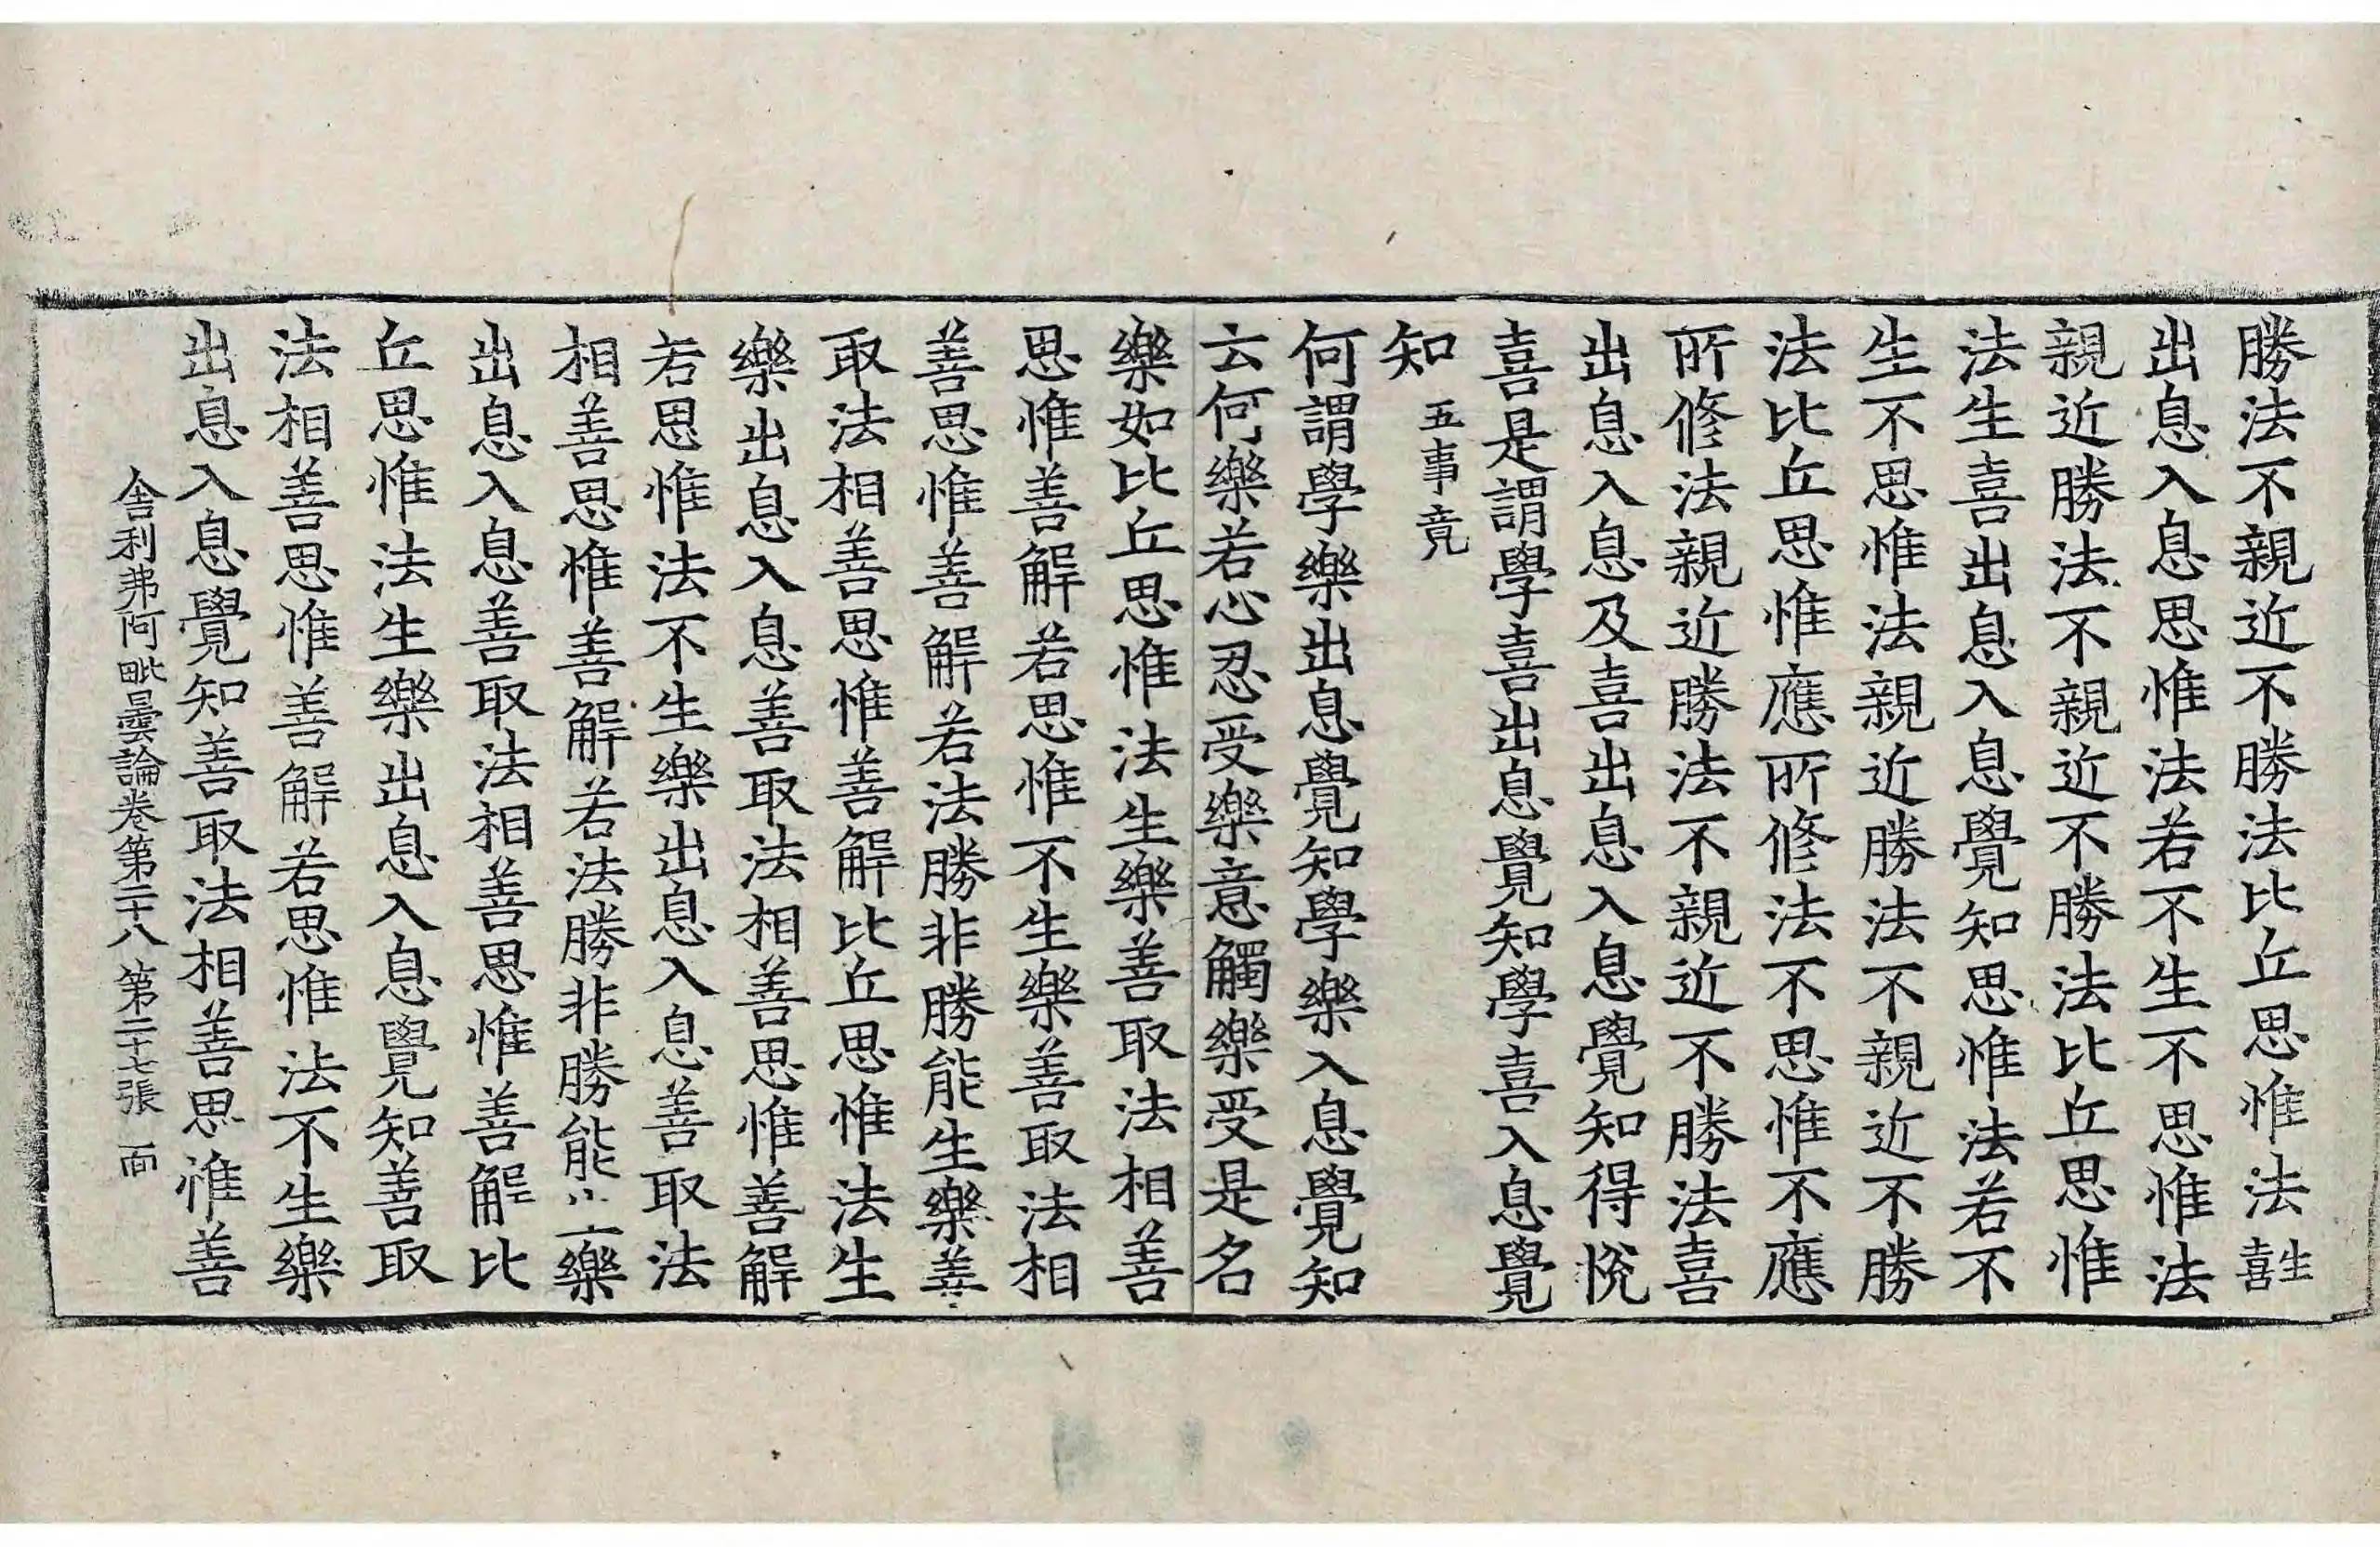 勝法不親近不勝法比丘思惟法生喜
出息入息思惟法若不生不思惟法
親近勝法不親近不勝法比丘思惟
法生喜出息入息覺知思惟法若不
生不思惟法親近勝法不親近不勝
法比丘思惟應所修法不思惟不應
所修法親近勝法不親近不勝法喜
出息入息及喜出息入息覺知得悅
喜是謂學喜出息覺知學喜入息覺
知 五事竟
何謂學樂出息覺知學樂入息覺知
云何樂若心忍受樂意觸樂受是名
樂如比丘思惟法生樂善取法相善
思惟善解若思惟不生樂善取法相
善思惟善解若法勝非勝能生樂善
取法相善思惟善解比丘思惟法生
樂出息入息善取法相善思惟善解
若思惟法不生樂出息入息善取法
相善思惟善解若法勝非勝能樂
出息入息善取法相善思惟善解比
丘思惟法生樂出息入息覺知善取
法相善思惟善解若思惟法不生樂
出息入息覺知善取法相善思惟善
舍利弗阿毗曇論卷第二十八 第二十七張 面